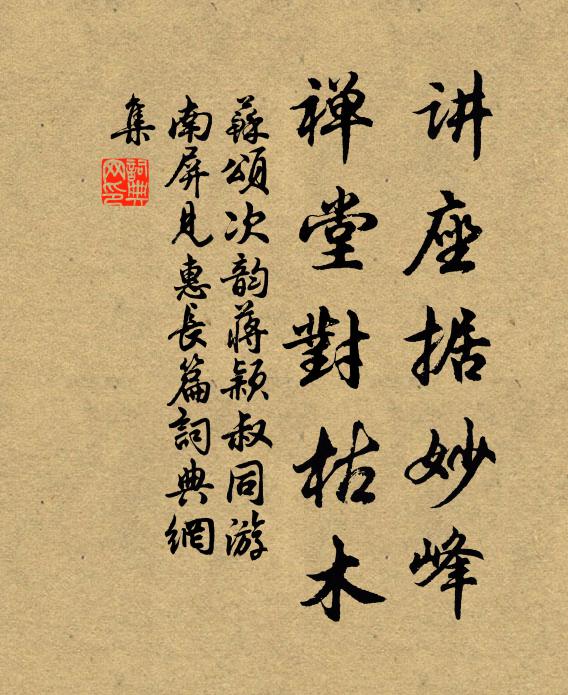 讲座据妙峰
禅堂對枯木
蘇頌次韵蔣颖叔同游
南屏見惠長篇詞典網
集
詞典网印